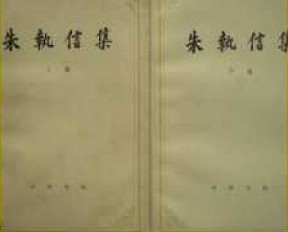 朱執信集
上集
中華書局
朱執信集
下集
中華書局